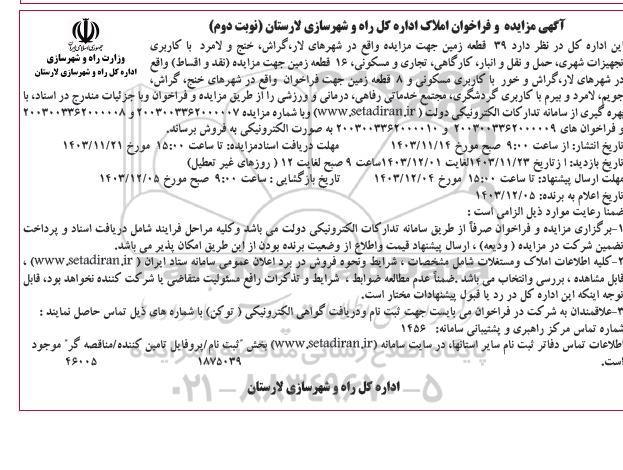 آگهی مزایده و فراخوان املاک اداره کل راه و شهرسازی لارستان (نوبت دوم)
جمهوری اسلامی ایران
وزارت راه و شهرسازی
اداره کل راه و شهرسازی لارستان
این اداره کل در نظر دارد ۳۹ قطعه زمین جهت مزایده واقع در شهرهای لار،گراش، خنج و لامرد با کاربری
تجهیزات شهری، حمل و نقل و انبار، کارگاهی، تجاری و مسکونی، ۱۶ قطعه زمین جهت مزایده (نقد و اقساط) واقع
در شهرهای لار،گراش و خور با کاربری مسکونی و ۸ قطعه زمین جهت فراخوان واقع در شهرهای خنج، گراش،
جویم، لامرد و بیرم با کاربری گردشگری، مجتمع خدماتی رفاهی، درمانی و ورزشی را از طریق مزایده و فراخوان وبا جزئیات مندرج در اسناد، با
بهره گیری از سامانه تدارکات الکترونیکی دولت (www.setadiran.ir) وبا شماره مزایده ۲۰۰۳۰۰۳۳۶۲۰۰۰۰۰۷ و ۲۰۰۳۰۰۳۳۶۲۰۰۰۰۰۸
و فراخوان های ۲۰۰۳۰۰۳۳۶۲۰۰۰۰۰۹ و ۲۰۰۳۰۰۳۳۶۲۰۰۰۰۱۰ به صورت الکترونیکی به فروش برساند.
تاریخ انتشار: از ساعت ۹:۰۰ صبح مورخ ۱۴۰۳/۱۱/۱۴ مهلت دریافت اسنادمزایده: تا ساعت ۱۵:۰۰ مورخ ۱۴۰۳/۱۱/۲۱
تاریخ بازدید: ازتاریخ ۱۴۰۳/۱۱/۲۳لغایت ۱۴۰۳/۱۲/۰۱ساعت ۹ صبح لغایت ۱۲ (روزهای غیر تعطیل)
مهلت ارسال پیشنهاد: تا ساعت ۱۵:۰۰ مورخ ۱۴۰۳/۱۲/۰۴ تاریخ بازگشایی: ساعت ۹:۰۰ صبح مورخ ۱۴۰۳/۱۲/۰۵
تاریخ اعلام به برنده: ۱۴۰۳/۱۲/۰۵
ضمنا رعایت موارد ذیل الزامی است :
۱-برگزاری مزایده و فراخوان صرفاً از طریق سامانه تدارکات الکترونیکی دولت می باشد وکلیه مراحل فرایند شامل دریافت اسناد و پرداخت
تضمین شرکت در مزایده (ودیعه) ، ارسال پیشنهاد قیمت واطلاع از وضعیت برنده بودن از این طریق امکان پذیر می باشد.
۲-کلیه اطلاعات املاک ومستغلات شامل مشخصات ، شرایط ونحوه فروش در برد اعلان عمومی سامانه ستاد ایران (www.setadiran.ir) ،
قابل مشاهده ، بررسی وانتخاب می باشد .ضمناً عدم مطالعه ضوابط ، شرایط و تذکرات رافع مسئولیت متقاضی یا شرکت کننده نخواهد بود، قابل
توجه اینکه این اداره کل در رد یا قبول پیشنهادات مختار است.
۳-علاقمندان به شرکت در فراخوان می بایست جهت ثبت نام ودریافت گواهی الکترونیکی (توکن) با شماره های ذیل تماس حاصل نمایند :
شماره تماس مرکز راهبری و پشتیبانی سامانه: ۱۴۵۶
اطلاعات تماس دفاتر ثبت نام سایر استانها، در سایت سامانه (www.setadiran.ir) بخش "ثبت نام /پروفایل تامین کننده/مناقصه گر" موجود
است. ۱۸۷۵۰۳۹ ۴۶۰۰۵
اداره کل راه و شهرسازی لارستان
۰۲۱-۸۸۳۴۹۶۷۰-۵